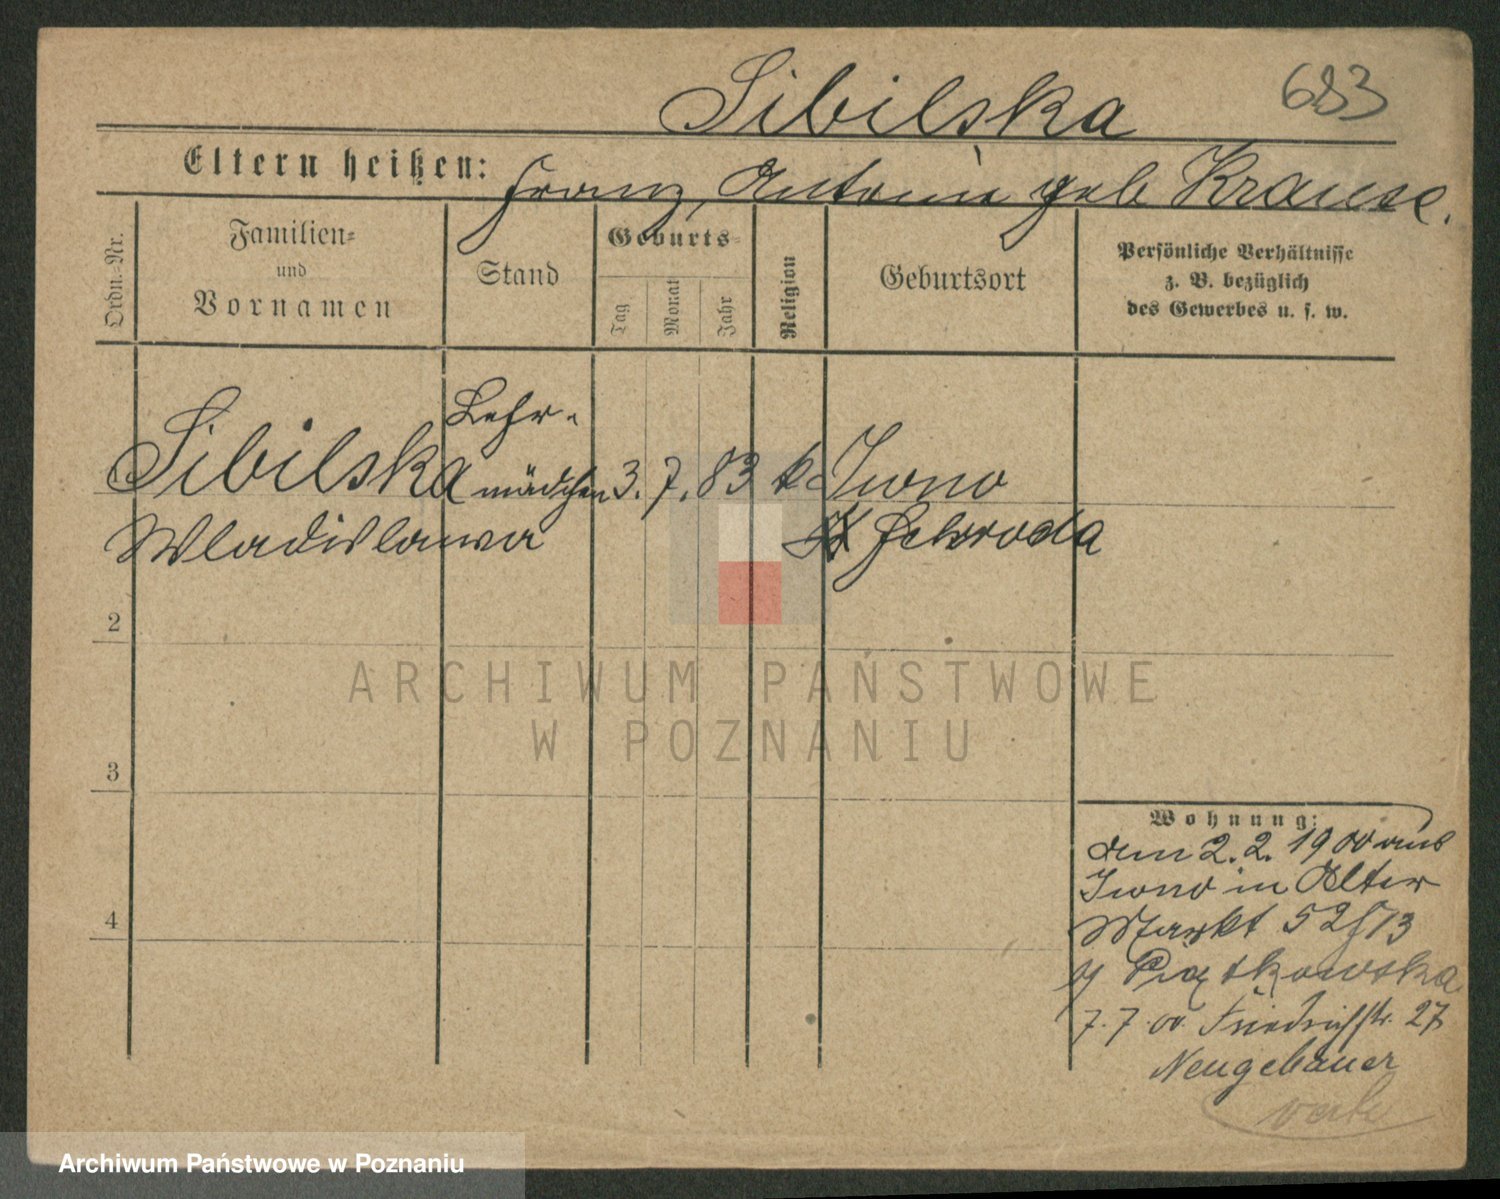 Sibilska 683
Eltern heißen: Franz, Antonin geb Krause.
Ordn.=Nr.
Familien=
und
Vornamen
Stand
Geburts=
Tag
Monat
Jahr
Religion
Geburtsort
Persönliche Verhältnisse
z. B. bezüglich
des Gewerbes u. s. w.
Lehr-
Sibilska mädchen 3. 7. 83 k. Iwno
Wladislawa K Schroda
2
3
4
ARCHIWUM PAŃSTWOWE
W POZNANIU
Wohnung:
2. 2. 1900 aus
Iwno in Alter
Markt 52/73
Piątkowska
7. 7. 00 Friedrichstr. 27
Neugebauer
Archiwum Państwowe w Poznaniu